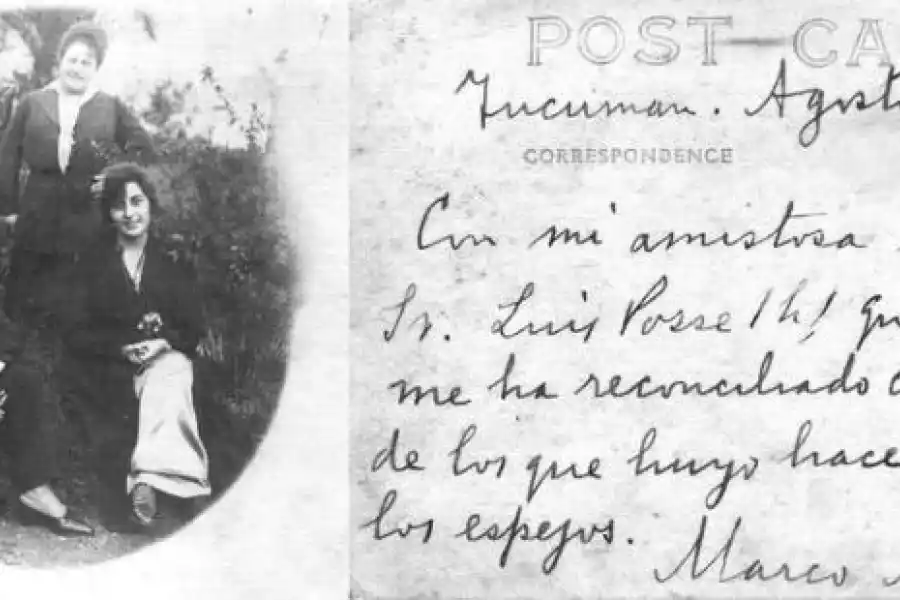 POST CA
Tucuman. Agosto
CORRESPONDENCE
Con mi amistosa
Sr. Luis Posse (h)
me ha reconciliado
de los que huyo hace
los espejos.
Marco